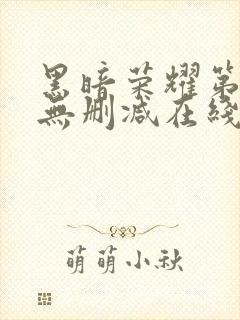 黑暗荣耀第
無删减在綫
萌萌小秋